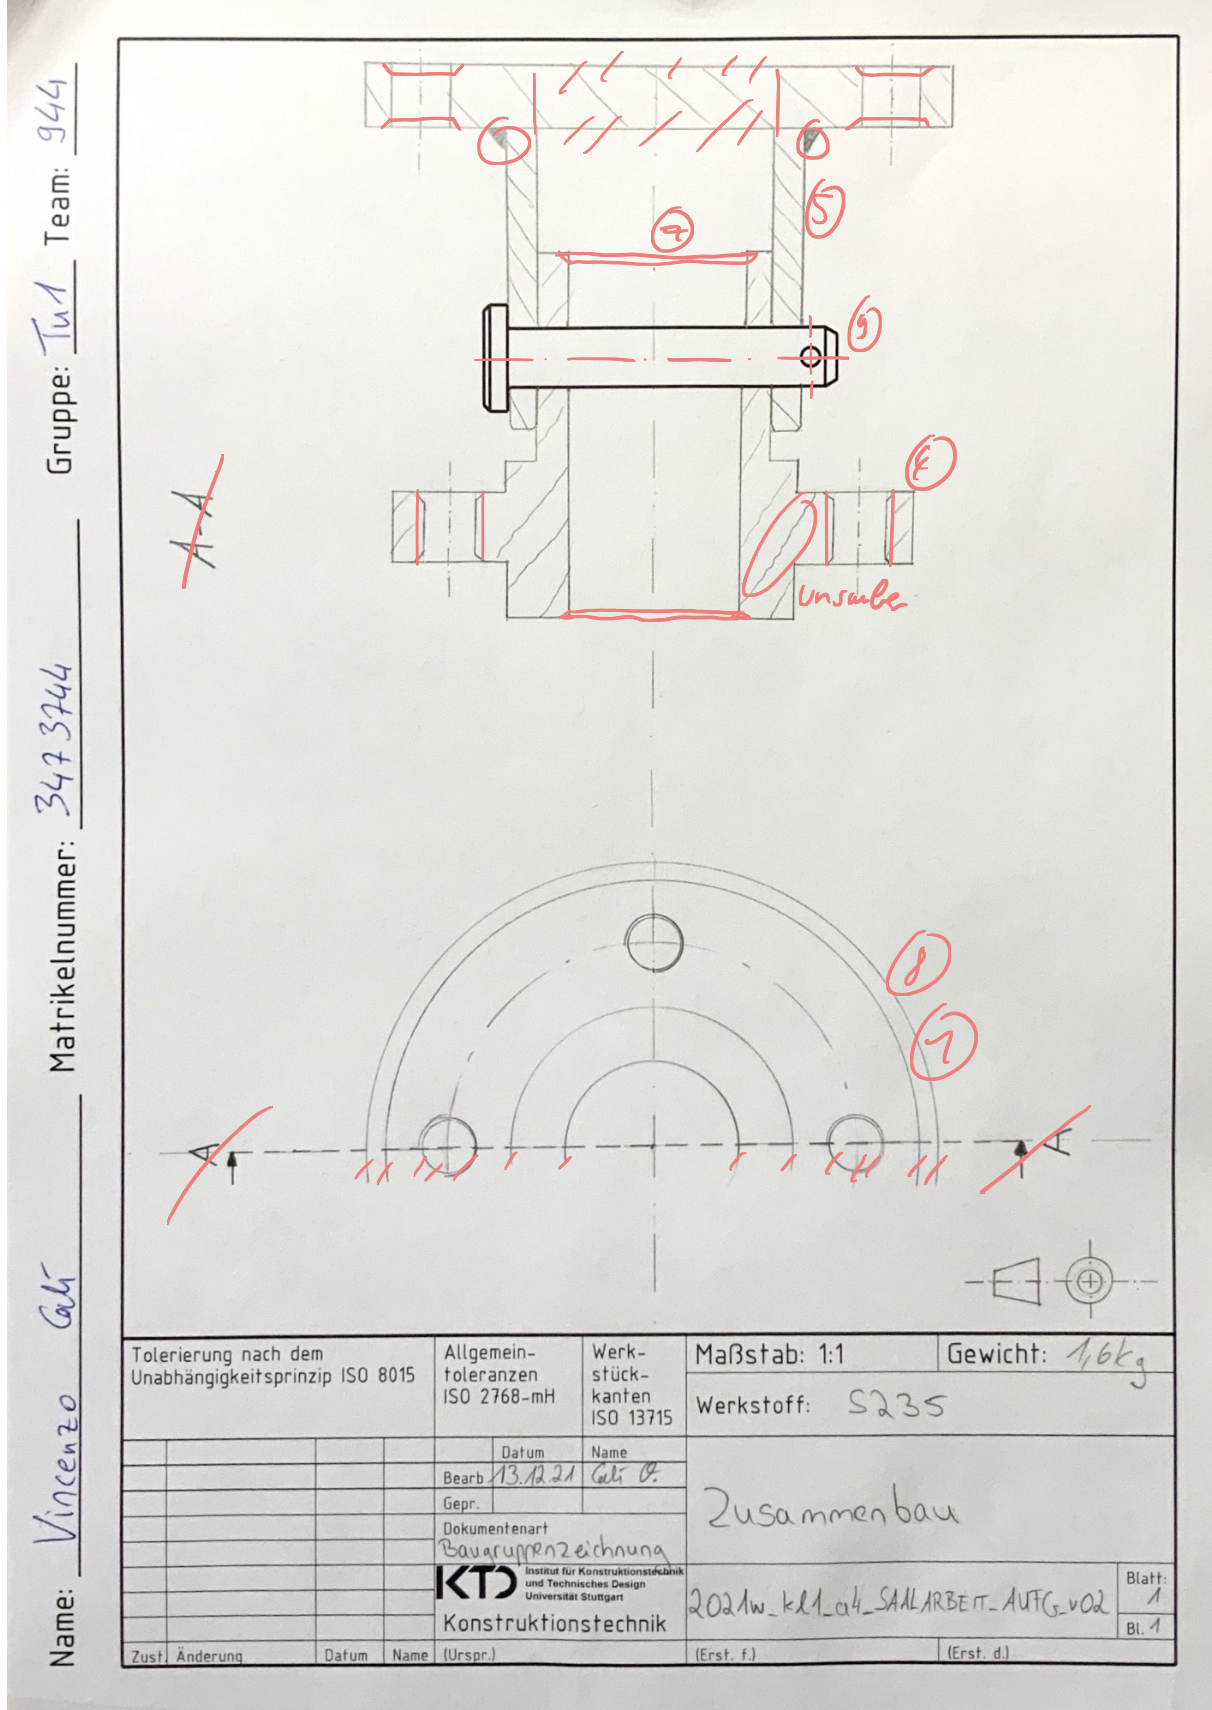 Name: Vincenzo Calì Matrikelnummer: 3473744 Gruppe: Tu1 Team: 944
7
5
9
A-A
unsauber
8
1
A
A
Tolerierung nach dem
Unabhängigkeitsprinzip ISO 8015
Allgemein-
toleranzen
ISO 2768-mH
Werk-
stück-
kanten
ISO 13715
Maßstab: 1:1
Gewicht: 1,6kg
Werkstoff: S235
Datum
Name
Bearb 13.12.21
Gepr.
Dokumentenart
Baugruppenzeichnung
Zusammenbau
KTD Institut für Konstruktionstechnik
und Technisches Design
Universität Stuttgart
Konstruktionstechnik
2021w_kl1_a4_SAALARBEIT_AUFG_v02
Blatt:
1
Bl. 1
Zust. Änderung Datum Name (Urspr.) (Erst. f.) (Erst. d.)